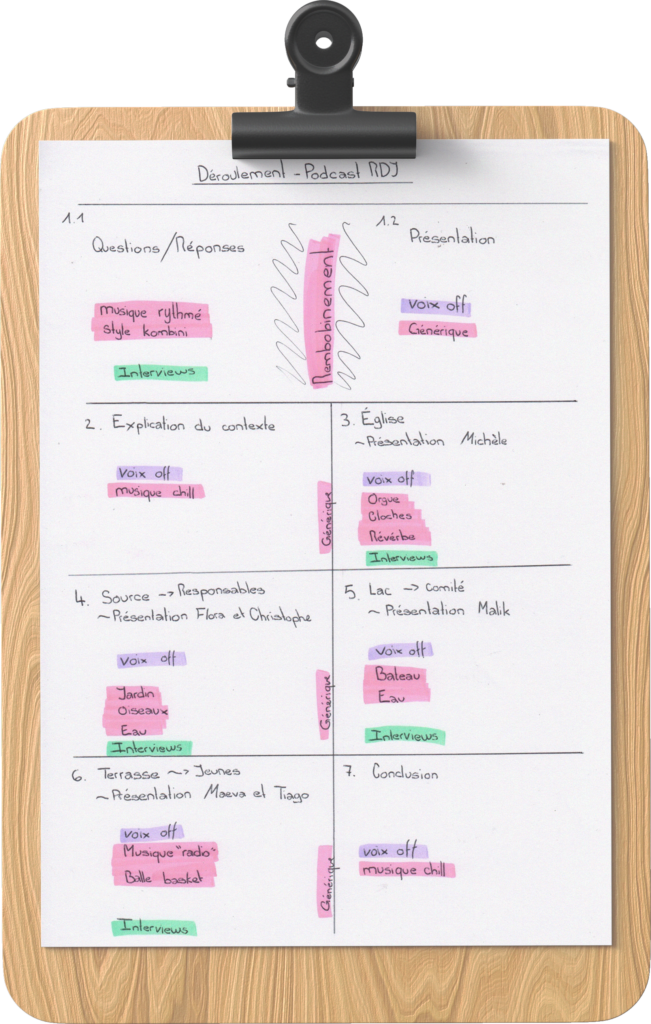 Déroulement - Podcast RDJ
1.1
Questions/Réponses
musique rythmé
style kombini
Interviews
Rembobinement
1.2
Présentation
voix off
Générique
2. Explication du contexte
voix off
musique chill
Générique
3. Église
~Présentation Michèle
voix off
Orgue
Cloches
Réverbe
Interviews
4. Source ~> Responsables
~Présentation Flora et Christophe
voix off
Jardin
Oiseaux
Eau
Interviews
Générique
5. Lac ~> Comité
~ Présentation Malik
voix off
Bateau
Eau
Interviews
6. Terrasse ~> Jeunes
~Présentation Maeva et Tiago
voix off
Musique "radio"
Balle basket
Interviews
Générique
7. Conclusion
voix off
musique chill